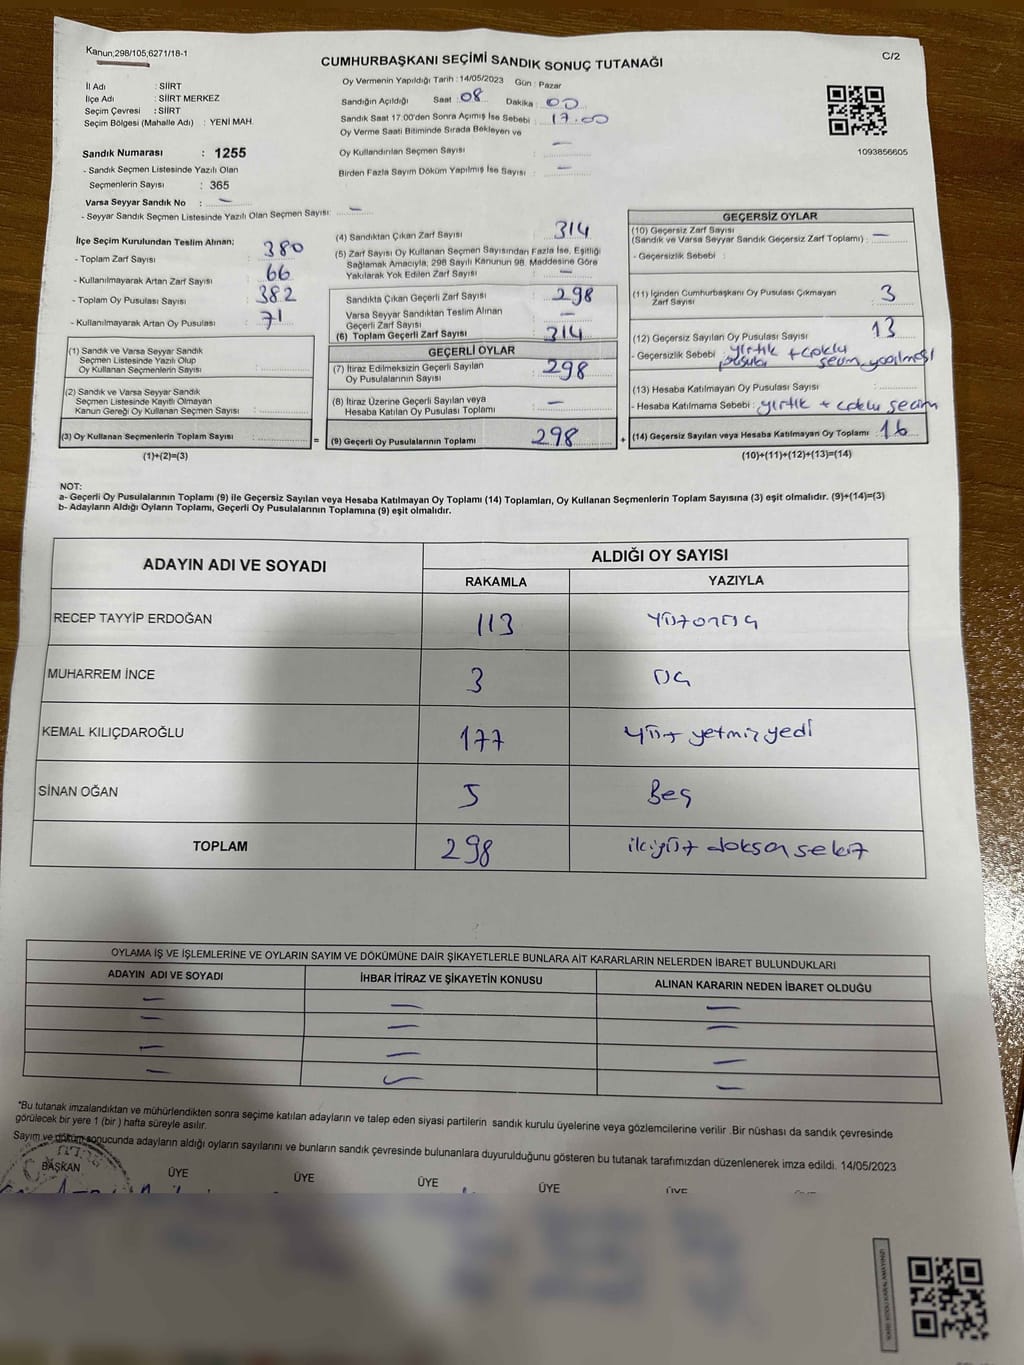 Kanun,298/105,6271/18-1
CUMHURBAŞKANI SEÇİMİ SANDIK SONUÇ TUTANAĞI
C/2
İl Adı : SİİRT
İlçe Adı : SİİRT MERKEZ
Seçim Çevresi : SİİRT
Seçim Bölgesi (Mahalle Adı) : YENİ MAH.
Oy Vermenin Yapıldığı Tarih : 14/05/2023 Gün : Pazar
Sandığın Açıldığı Saat : 08 Dakika : 00
Sandık Saat 17:00'den Sonra Açımış İse Sebebi : 17.00
Oy Verme Saati Bitiminde Sırada Bekleyen ve
Oy Kullandırılan Seçmen Sayısı : —
Birden Fazla Sayım Döküm Yapılmış İse Sayısı : —
1093856605
Sandık Numarası : 1255
- Sandık Seçmen Listesinde Yazılı Olan
Seçmenlerin Sayısı : 365
Varsa Seyyar Sandık No : —
- Seyyar Sandık Seçmen Listesinde Yazılı Olan Seçmen Sayısı: —
İlçe Seçim Kurulundan Teslim Alınan;
- Toplam Zarf Sayısı : 380
- Kullanılmayarak Artan Zarf Sayısı : 66
- Toplam Oy Pusulası Sayısı : 382
- Kullanılmayarak Artan Oy Pusulası : 71
(1) Sandık ve Varsa Seyyar Sandık
Seçmen Listesinde Yazılı Olup
Oy Kullanan Seçmenlerin Sayısı :
(2) Sandık ve Varsa Seyyar Sandık
Seçmen Listesinde Kayıtlı Olmayan
Kanun Gereği Oy Kullanan Seçmen Sayısı :
(3) Oy Kullanan Seçmenlerin Toplam Sayısı :
(1)+(2)=(3)
(4) Sandıktan Çıkan Zarf Sayısı : 314
(5) Zarf Sayısı Oy Kullanan Seçmen Sayısından Fazla İse, Eşitliği
Sağlamak Amacıyla, 298 Sayılı Kanunun 98. Maddesine Göre
Yakılarak Yok Edilen Zarf Sayısı : —
Sandıkta Çıkan Geçerli Zarf Sayısı : 298
Varsa Seyyar Sandıktan Teslim Alınan
Geçerli Zarf Sayısı : —
(6) Toplam Geçerli Zarf Sayısı : 314
GEÇERLİ OYLAR
(7) İtiraz Edilmeksizin Geçerli Sayılan
Oy Pusulalarının Sayısı : 298
(8) İtiraz Üzerine Geçerli Sayılan veya
Hesaba Katılan Oy Pusulaları Toplamı : —
= (9) Geçerli Oy Pusulalarının Toplamı : 298 +
GEÇERSİZ OYLAR
(10) Geçersiz Zarf Sayısı
(Sandık ve Varsa Seyyar Sandık Geçersiz Zarf Toplamı) : —
- Geçersizlik Sebebi :
(11) İçinden Cumhurbaşkanı Oy Pusulası Çıkmayan
Zarf Sayısı : 3
(12) Geçersiz Sayılan Oy Pusulası Sayısı : 13
- Geçersizlik Sebebi : yırtık + çoklu
pusula seçim yapılması
(13) Hesaba Katılmayan Oy Pusulası Sayısı :
- Hesaba Katılmama Sebebi : yırtık + çoklu seçim
(14) Geçersiz Sayılan veya Hesaba Katılmayan Oy Toplamı : 16
(10)+(11)+(12)+(13)=(14)
NOT:
a- Geçerli Oy Pusulalarının Toplamı (9) ile Geçersiz Sayılan veya Hesaba Katılmayan Oy Toplamı (14) Toplamları, Oy Kullanan Seçmenlerin Toplam Sayısına (3) eşit olmalıdır. (9)+(14)=(3)
b- Adayların Aldığı Oyların Toplamı, Geçerli Oy Pusulalarının Toplamına (9) eşit olmalıdır.
ADAYIN ADI VE SOYADI
ALDIĞI OY SAYISI
RAKAMLA YAZIYLA
RECEP TAYYİP ERDOĞAN 113 Yüzonüç
MUHARREM İNCE 3 üç
KEMAL KILIÇDAROĞLU 177 yüz yetmiş yedi
SİNAN OĞAN 5 Beş
TOPLAM 298 ikiyüz doksan sekiz
OYLAMA İŞ VE İŞLEMLERİNE VE OYLARIN SAYIM VE DÖKÜMÜNE DAİR ŞİKAYETLERLE BUNLARA AİT KARARLARIN NELERDEN İBARET BULUNDUKLARI
ADAYIN ADI VE SOYADI İHBAR İTİRAZ VE ŞİKAYETİN KONUSU ALINAN KARARIN NEDEN İBARET OLDUĞU
— — —
— — —
— — —
— — —
*Bu tutanak imzalandıktan ve mühürlendikten sonra seçime katılan adayların ve talep eden siyasi partilerin sandık kurulu üyelerine veya gözlemcilerine verilir .Bir nüshası da sandık çevresinde
görülecek bir yere 1 (bir ) hafta süreyle asılır.
Sayım ve döküm sonucunda adayların aldığı oyların sayılarını ve bunların sandık çevresinde bulunanlara duyurulduğunu gösteren bu tutanak tarafımızdan düzenlenerek imza edildi. 14/05/2023
BAŞKAN ÜYE ÜYE ÜYE ÜYE ÜYE